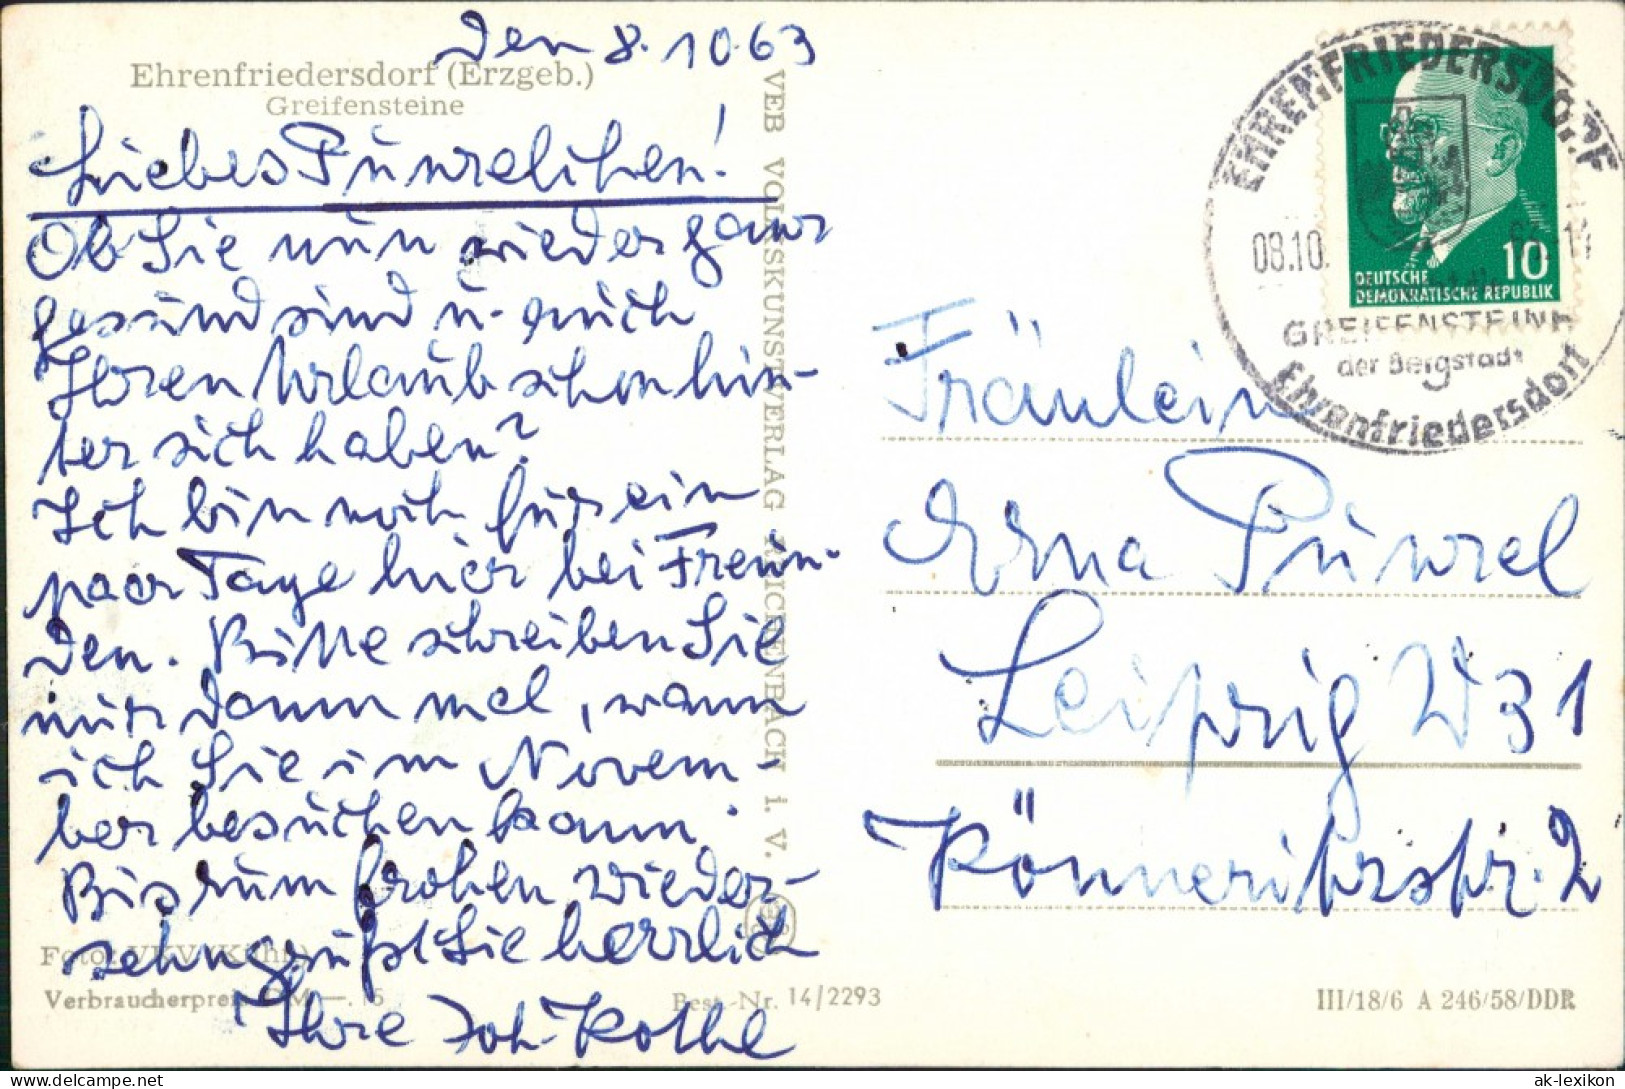 Den 8.10.63
Ehrenfriedersdorf (Erzgeb.)
Greifensteine
Liebes Pünzelchen!
Ob Sie nun wieder ganz
gesund sind u. auch
Ihren Urlaub schon hin-
ter sich haben?
Ich bin noch für ein
paar Tage hier bei Freun-
den. Bitte schreiben Sie
mir dann mal, wann
ich Sie im Novem-
ber besuchen kann.
Bis zum frohen Wieder-
sehn grüßt Sie herzlich
Ihre Joh. Kothe
Foto: VKV (Kühn)
Verbraucherpreis DM —.15
Best.-Nr. 14/2293
VEB VOLKSKUNSTVERLAG REICHENBACH i. V.
EHRENFRIEDERSDORF
08.10.
GREIFENSTEINE
der Bergstadt
Ehrenfriedersdorf
10
DEUTSCHE
DEMOKRATISCHE REPUBLIK
Fräulein
Erna Pünzel
Leipzig W31
Könneritzstr. 2
III/18/6 A 246/58/DDR
https://www.delcampe.net
ak-lexikon